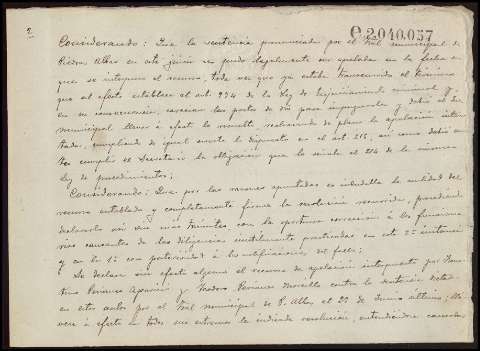 2
C.2.040.057
Considerando: Que la sentencia pronunciada por el Tral. municipal de
Piedras Albas en este juicio no pudo legalmente ser apelada en la fecha en
que se interpuso el recurso, toda vez que ya estaba transcurrido el término
que al efecto establece el art. 974 de la Ley de Enjuiciamiento criminal y
en su consecuencia, carecían las partes de para impugnarla y debió el
municipal llevar á efecto lo resuelto, rechazando de plano la apelación inten-
tada, cumpliendo de igual suerte lo dispuesto en el art. 215, así como debió
cumplir el Secretario la obligación que le señala el 214 de la misma
Ley de procedimientos;
Considerando: Que por las razones apuntadas es indudable la nulidad del
recurso entablado y completamente firme la resolución recurrida, procediendo
declararlo así sin más trámites, con la oportuna corrección á los funciona-
rios causantes de las diligencias inútilmente practicadas en esta 2ª instancia
y en la 1ª con posterioridad á las notificaciones del fallo;
Se declara sin efecto alguno el recurso de apelación interpuesto por
y Teodora contra la sentencia dicta-
en estos autos por el Tral municipal de P. Albas el 25 de Junio último;
á efecto en todos sus extremos la indicada resolución, entendiéndose